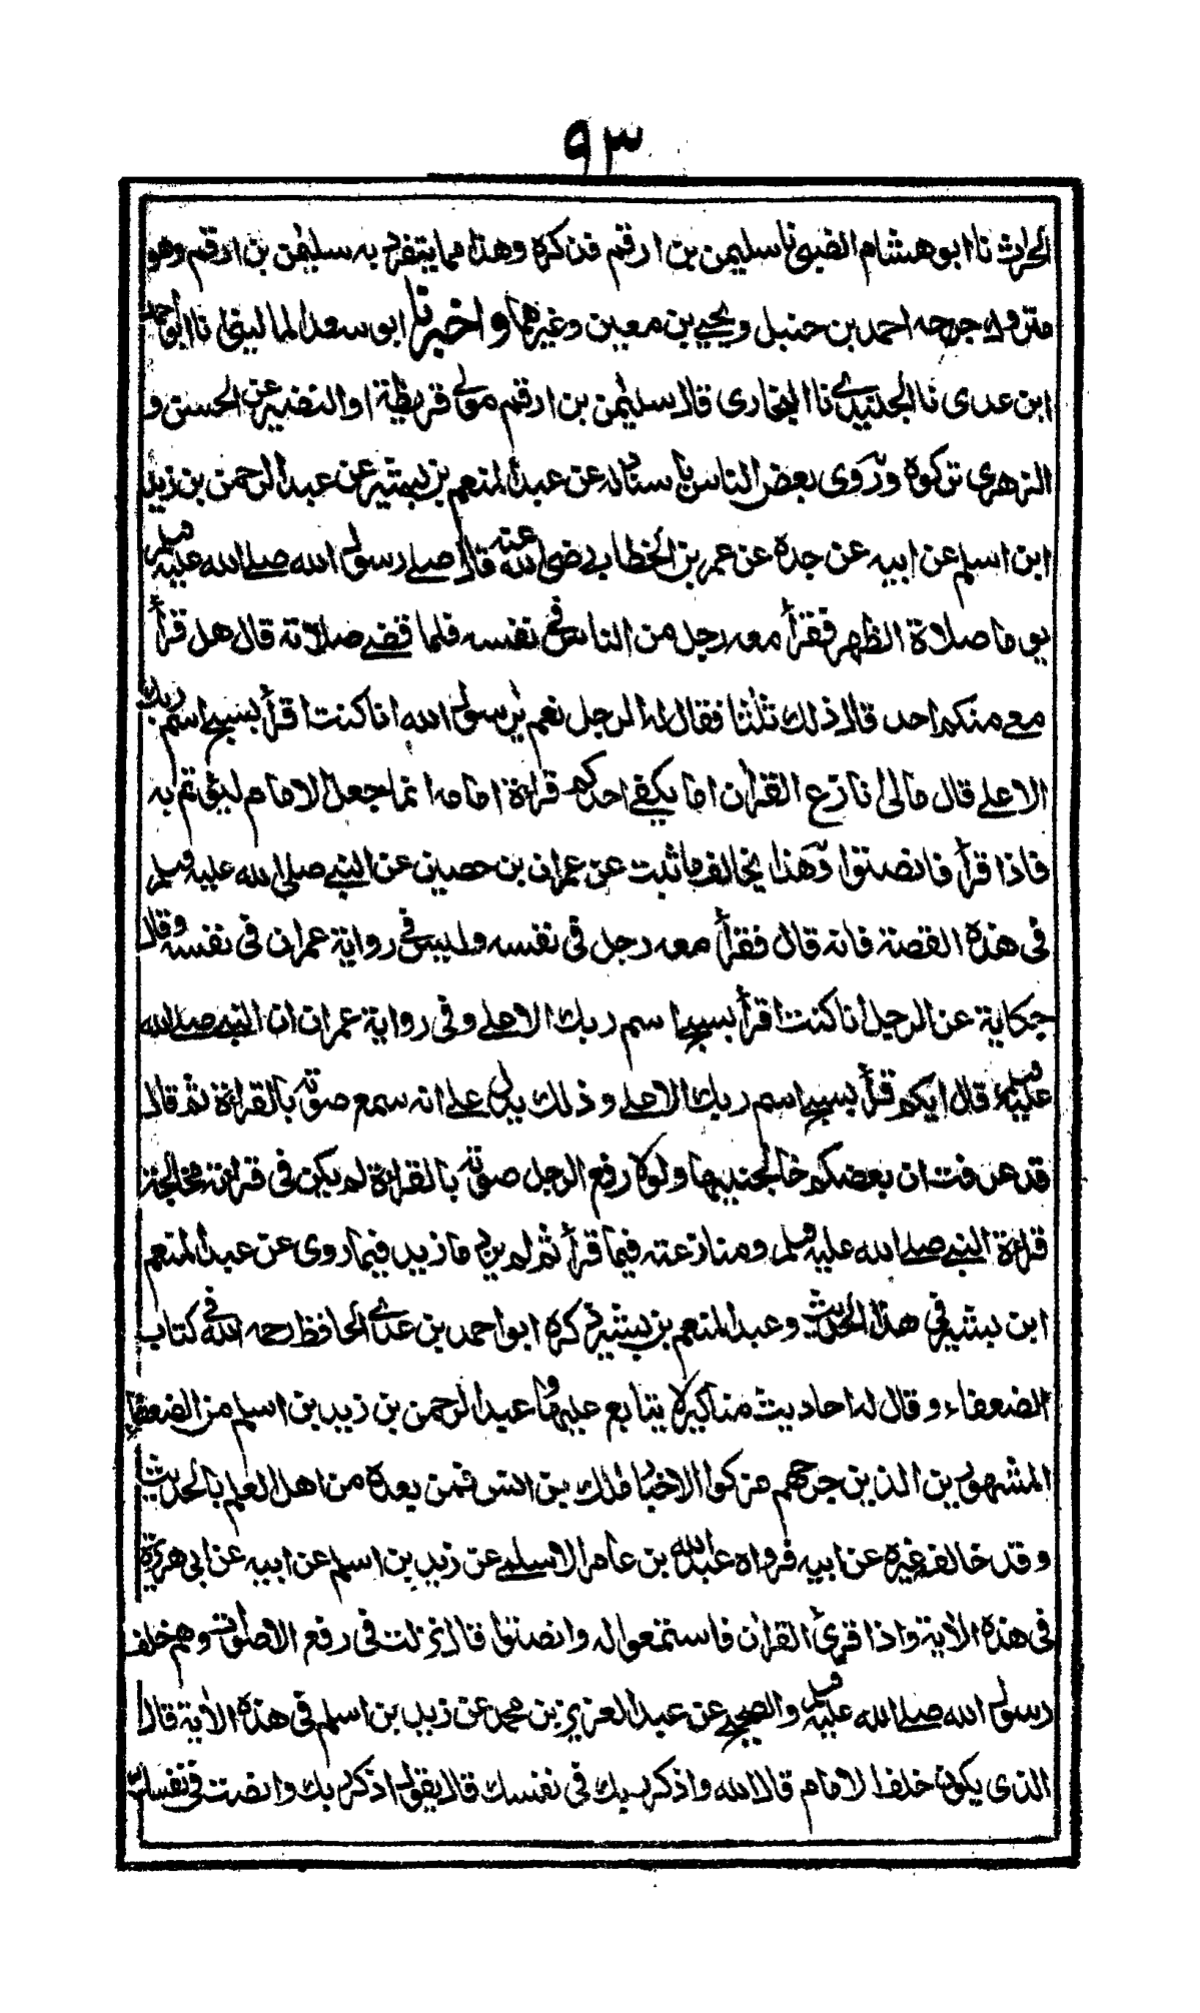 ٩٣
الحراث نا ابو هشام الضبى نا سليمن بن ارقم فذكره وهذا مما يتفرد به سليمٰن بن ارقم وهو
متروك جرحه احمد بن حنبل ويحيى بن معين وغيرهما واخبرنا ابو سعد الماليني نا ابو احمد
ابن عدى نا الجنيدى نا البخارى قال سليمٰن بن ارقم مولى قريظة او النضير عن الحسن و
الزهرى تركوه وروى بعض الناس باسناده عن عبد المنعم بن بشير عن عبد الرحمن بن زيد
ابن اسلم عن ابيه عن جده عن عمر بن الخطاب رضى الله عنه قال صلى رسول الله صلى الله عليه وسلم
يوما صلاة الظهر فقرأ معه رجل من الناس في نفسه فلما قضى صلاته قال هل قرأ
معى منكم احد قال ذلك ثلٰثا فقال له الرجل نعم يرسول الله انا كنت اقرأ بسبح اسم ربك
الاعلى قال مالى انازع القراٰن اما يكفى احدكم قراءة امامه انما جعل الامام ليؤتم به
فاذا قرأ فانصتوا وهذا يخالف ما ثبت عن عمران بن حصين عن النبي صلى الله عليه وسلم
فى هذه القصة فانه قال فقرأ معه رجل فى نفسه وليس في رواية عمران فى نفسه وقال
حكاية عن الرجل انا كنت اقرأ بسبح اسم ربك الاعلى وفى رواية عمران ان النبي صلى الله
عليه وسلم قال ايكم قرأ بسبح اسم ربك الاعلى وذلك يدل على انه سمع صوته بالقراءة ثم قال
قد عرفت ان بعضكم خالجنيها ولولا رفع الرجل صوته بالقراءة لم يكن فى قراءته مخالجة
قراءة النبي صلى الله عليه وسلم ومنازعته فيما قرأ ثم لم يرو ما زيد فيما روى عن عبد المنعم
ابن بشير في هذا الحديث وعبد المنعم بن بشير ذكره ابو احمد بن عدى الحافظ رحمه الله في كتاب
الضعفاء وقال له احاديث مناكير لا يتابع عليها وعبد الرحمن بن زيد بن اسلم من الضعفاء
المشهورين الذين جرحهم مزكوا الاخبار مالك بن انس فمن بعده من اهل العلم بالحديث
وقد خالف غيره عن ابيه فرواه عبد الله بن عامر الاسلمى عن زيد بن اسلم عن ابيه عن ابى هريرة
فى هذه الاٰية واذا قرئ القراٰن فاستمعوا له وانصتوا قال نزلت فى رفع الاصوات وهم خلف
رسول الله صلى الله عليه وسلم والصحيح عن عبد العزيز بن محمد عن زيد بن اسلم فى هذه الاٰية قال
الذى يكون خلف الامام قال الله واذكر ربك فى نفسك قال يقول اذكر ربك وانصت فى نفسك